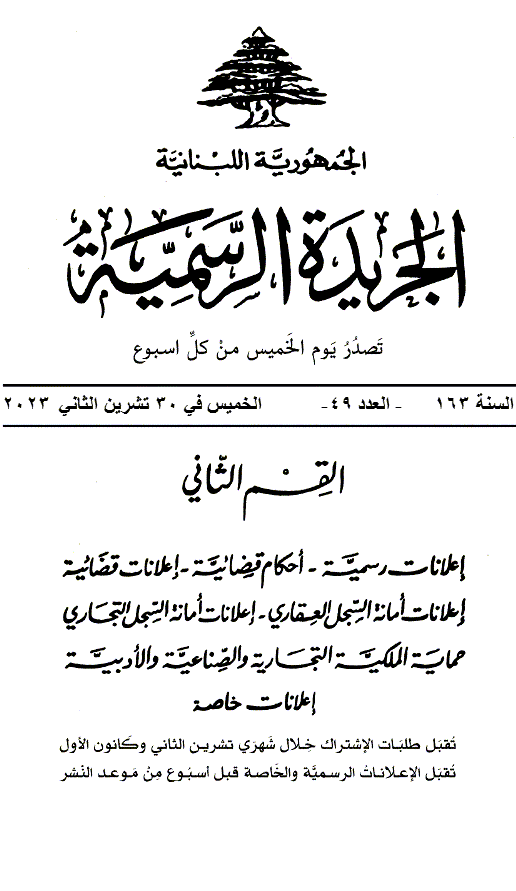 الجُمهُوريَّة اللبْنانيَّة
الجَريدَة الرَّسمِيَّة
تَصدُرُ يَوم الخَميس منْ كلِّ اسبوع
السنة ١٦٣ - العدد ٤٩- الخميس في ٣٠ تشرين الثاني ٢٠٢٣
القِسْم الثَّاني
إعلانات رسميَّة - أحكام قضائيَّة - إعلانات قضائية
إعلانات أمانة السِّجل العقاري - إعلانات أمانة السِّجل التجاري
حماية الملكيَّة التجارية والصِّناعيَّة والأدبيَّة
إعلانات خاصة
تُقبَل طلبَات الإشتراك خِلال شَهرَي تشرين الثاني وكَانون الأول
تُقبَل الإعلاناتُ الرسميَّة والخَاصة قبل أسبُوع مِنْ مَوعد النَشر